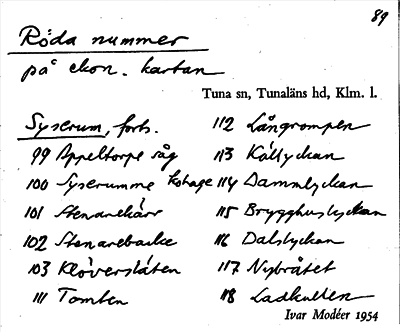 89
Röda nummer
på ekon. kartan
Tuna sn, Tunaläns hd, Klm. l.
Syserum, forts.
99 Appeltorpe såg
100 Syserumme kohage
101 Stenarekärr
102 Stenarebacke
103 Klöverslåten
111 Tomten
112 Långrompen
113 Källyckan
114 Dammlyckan
115 Brygghuslyckan
116 Dalslyckan
117 Nybråtet
118 Ladkullen
Ivar Modéer 1954